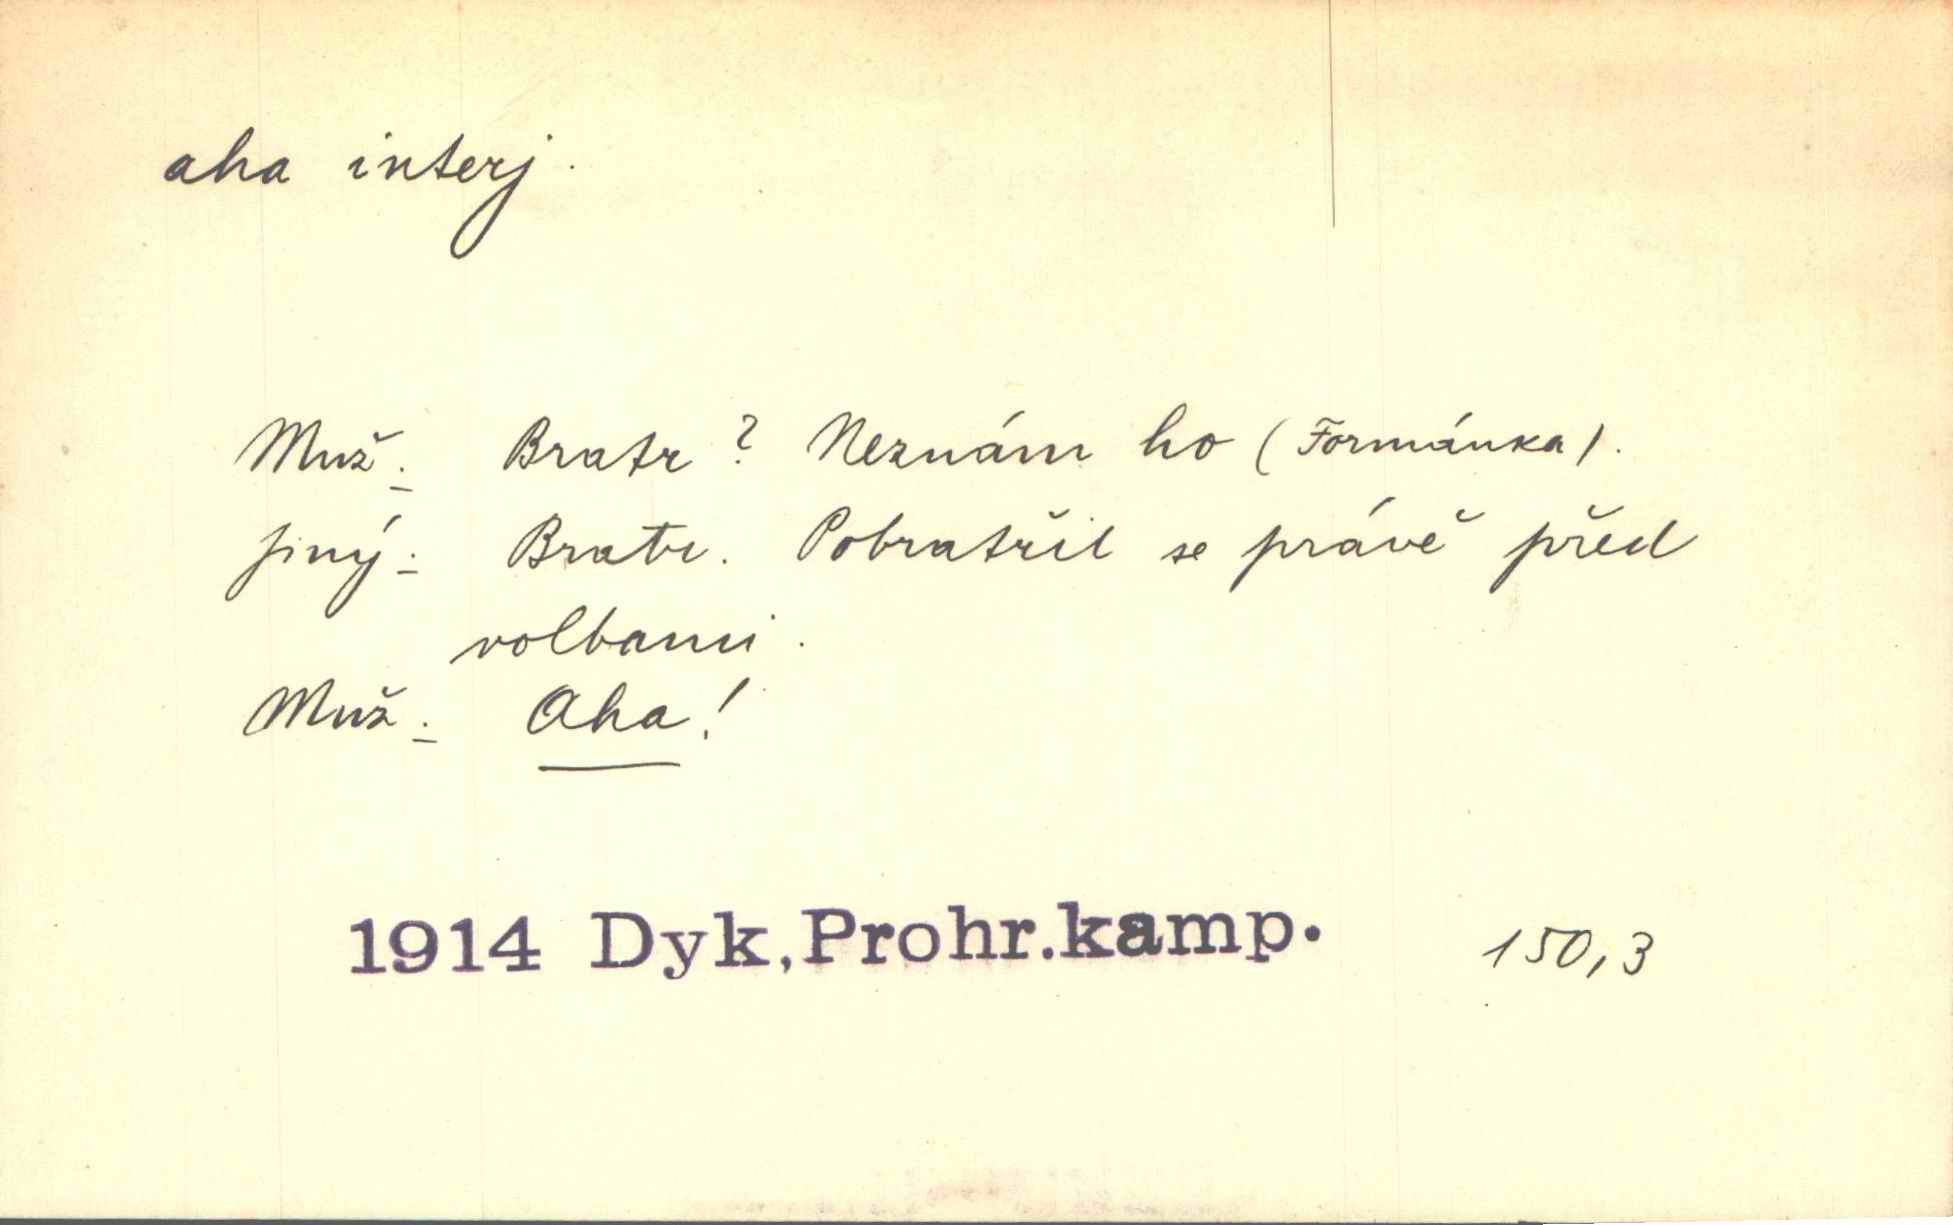 aha interj.
Muž: Bratr? Neznám ho (Formánka).
jiný: Bratr. Pobratřil se právě před
volbami.
Muž: Aha!
1914 Dyk,Prohr.kamp. 150,3